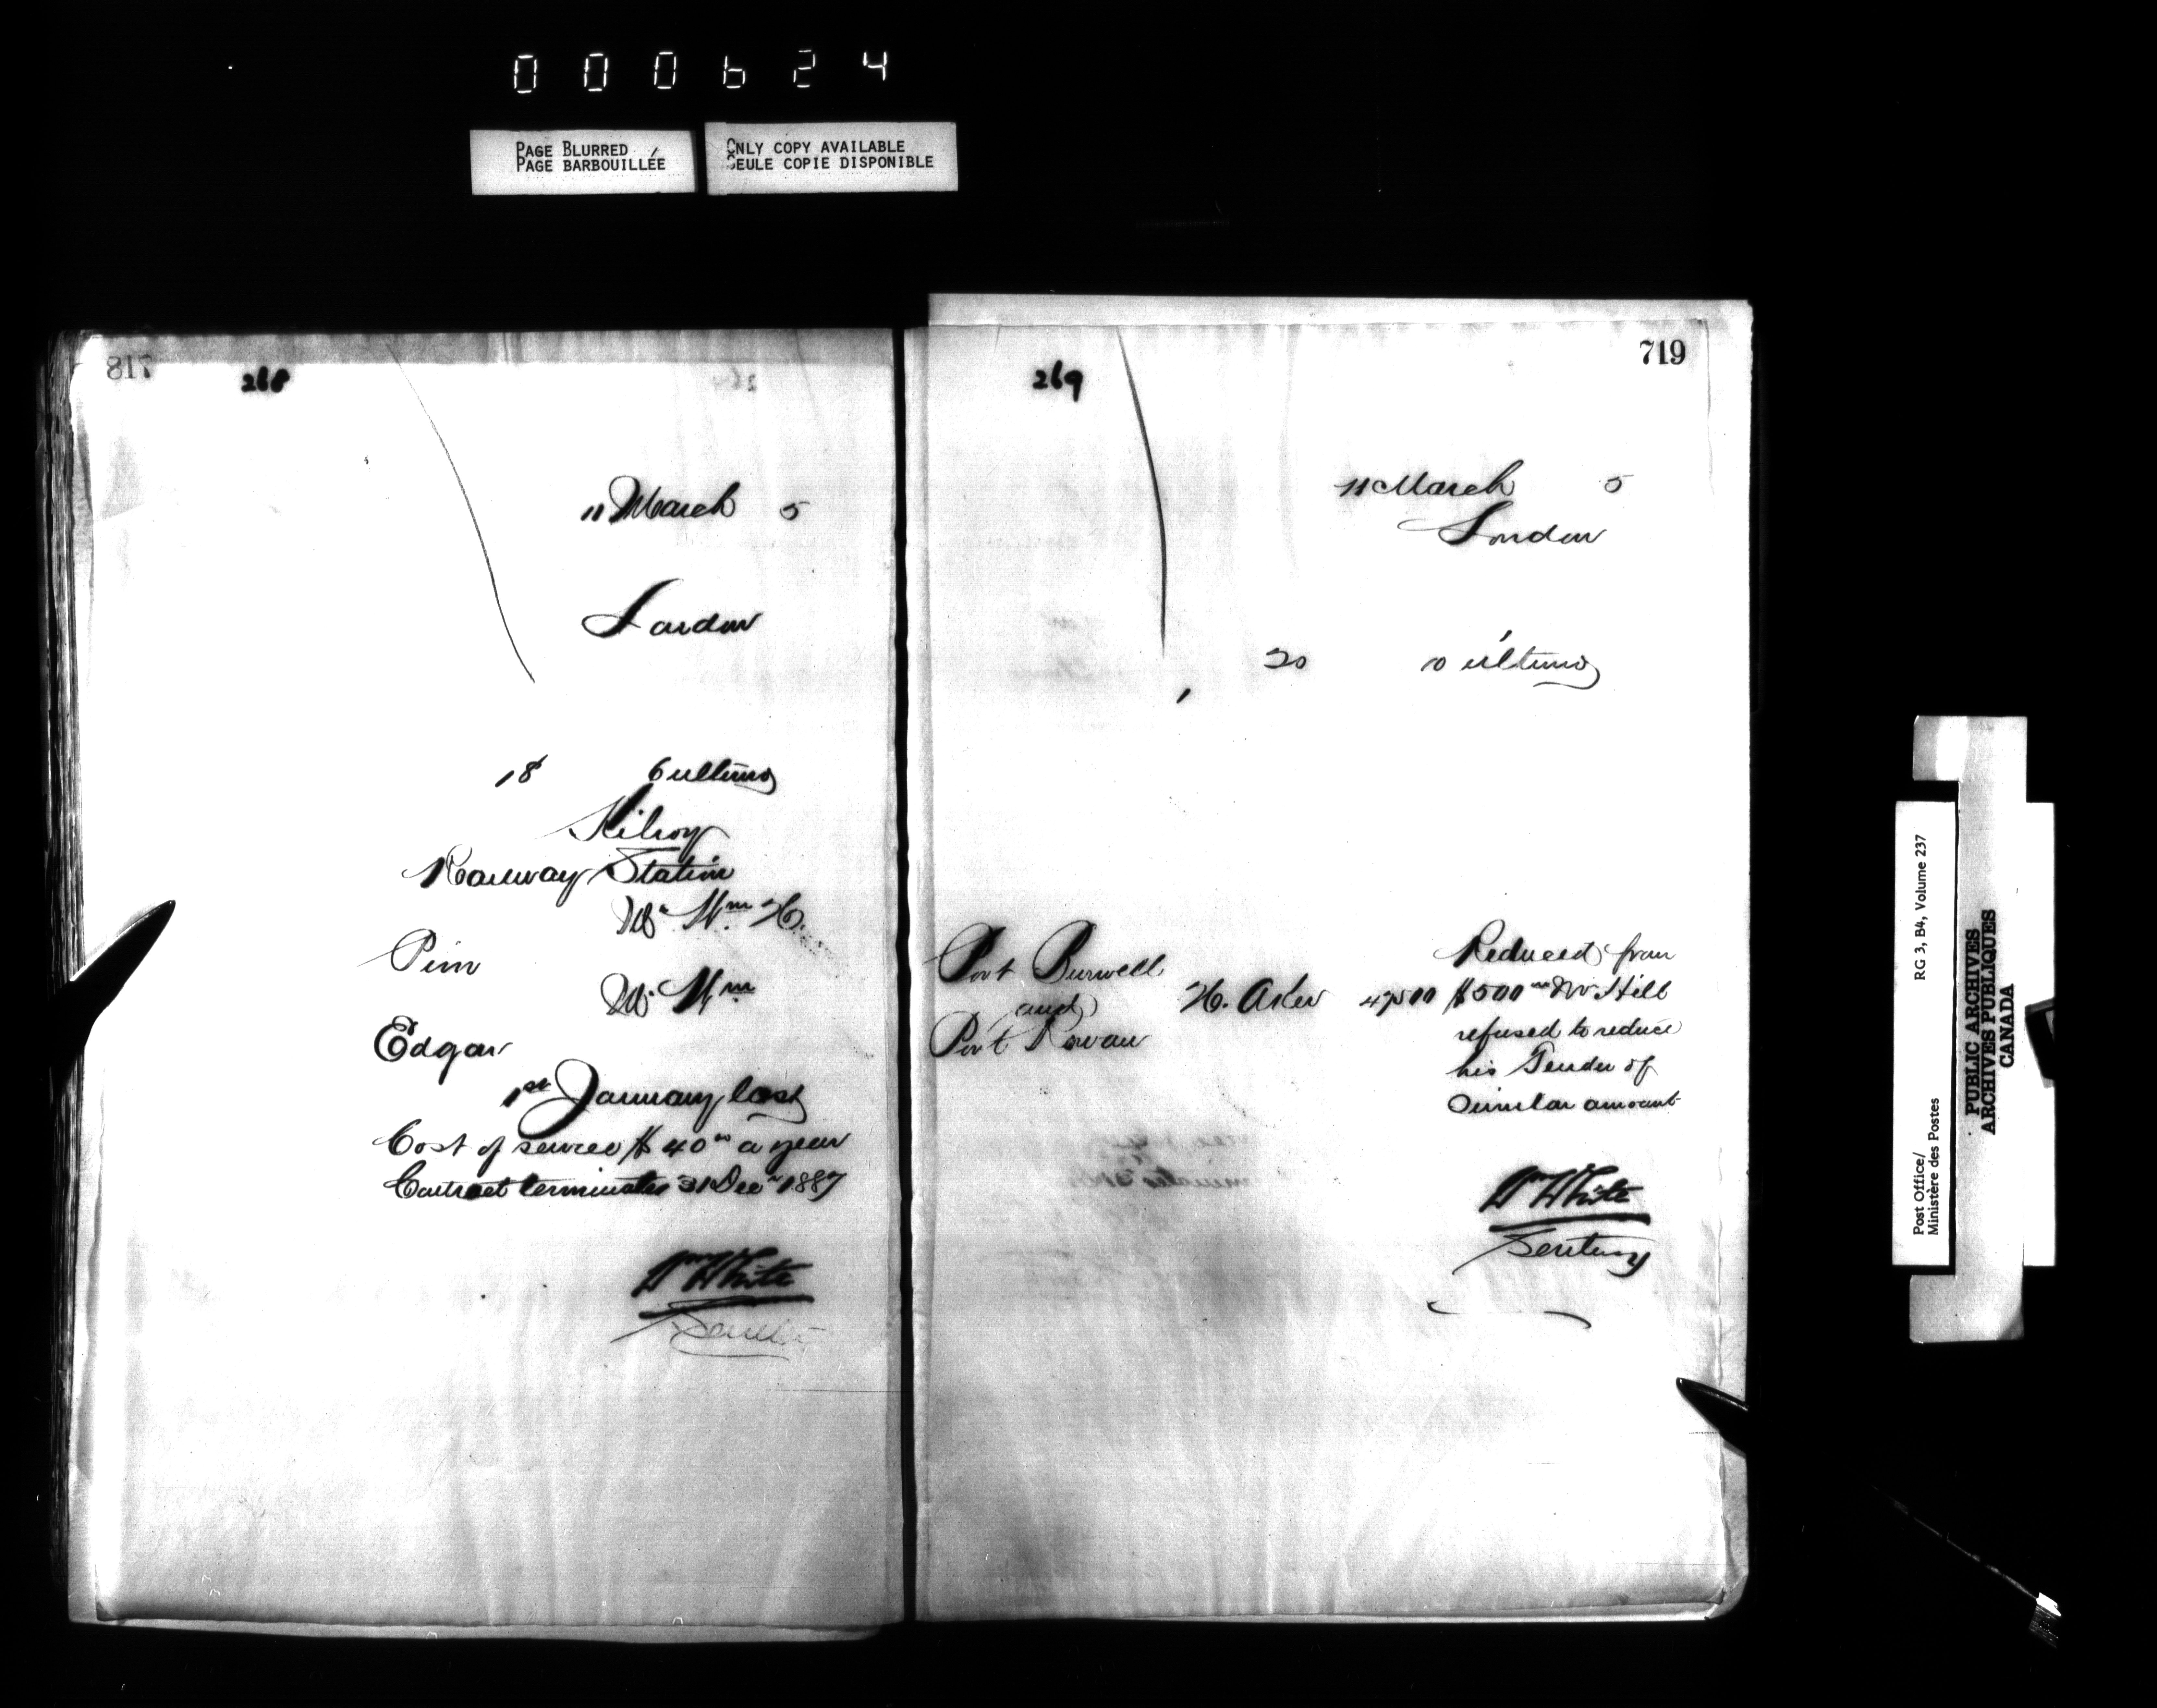 000624
PAGE BLURRED
PAGE BARBOUILLÉE
ONLY COPY AVAILABLE
SEULE COPIE DISPONIBLE
817
268
11 March 5
London
18 6 ultimo
Kilroy
Railway Station
Mr. Wm. H.
Pim
Mr. Wm.
Edgar
1st January last
Cost of service $40 00 a year
Contract terminates 31 Decr 1887
Wm White
719
269
11 March 5
London
20 10 ultimo
Port Burwell
and
Port Rowan
H. Aker
475 00
Reduced from
$500 00 Mr Hill
refused to reduce
his Tender of
Similar amount
Wm White
Secretary
Post Office/
Ministère des Postes
RG 3, B4, Volume 237
PUBLIC ARCHIVES
ARCHIVES PUBLIQUES
CANADA